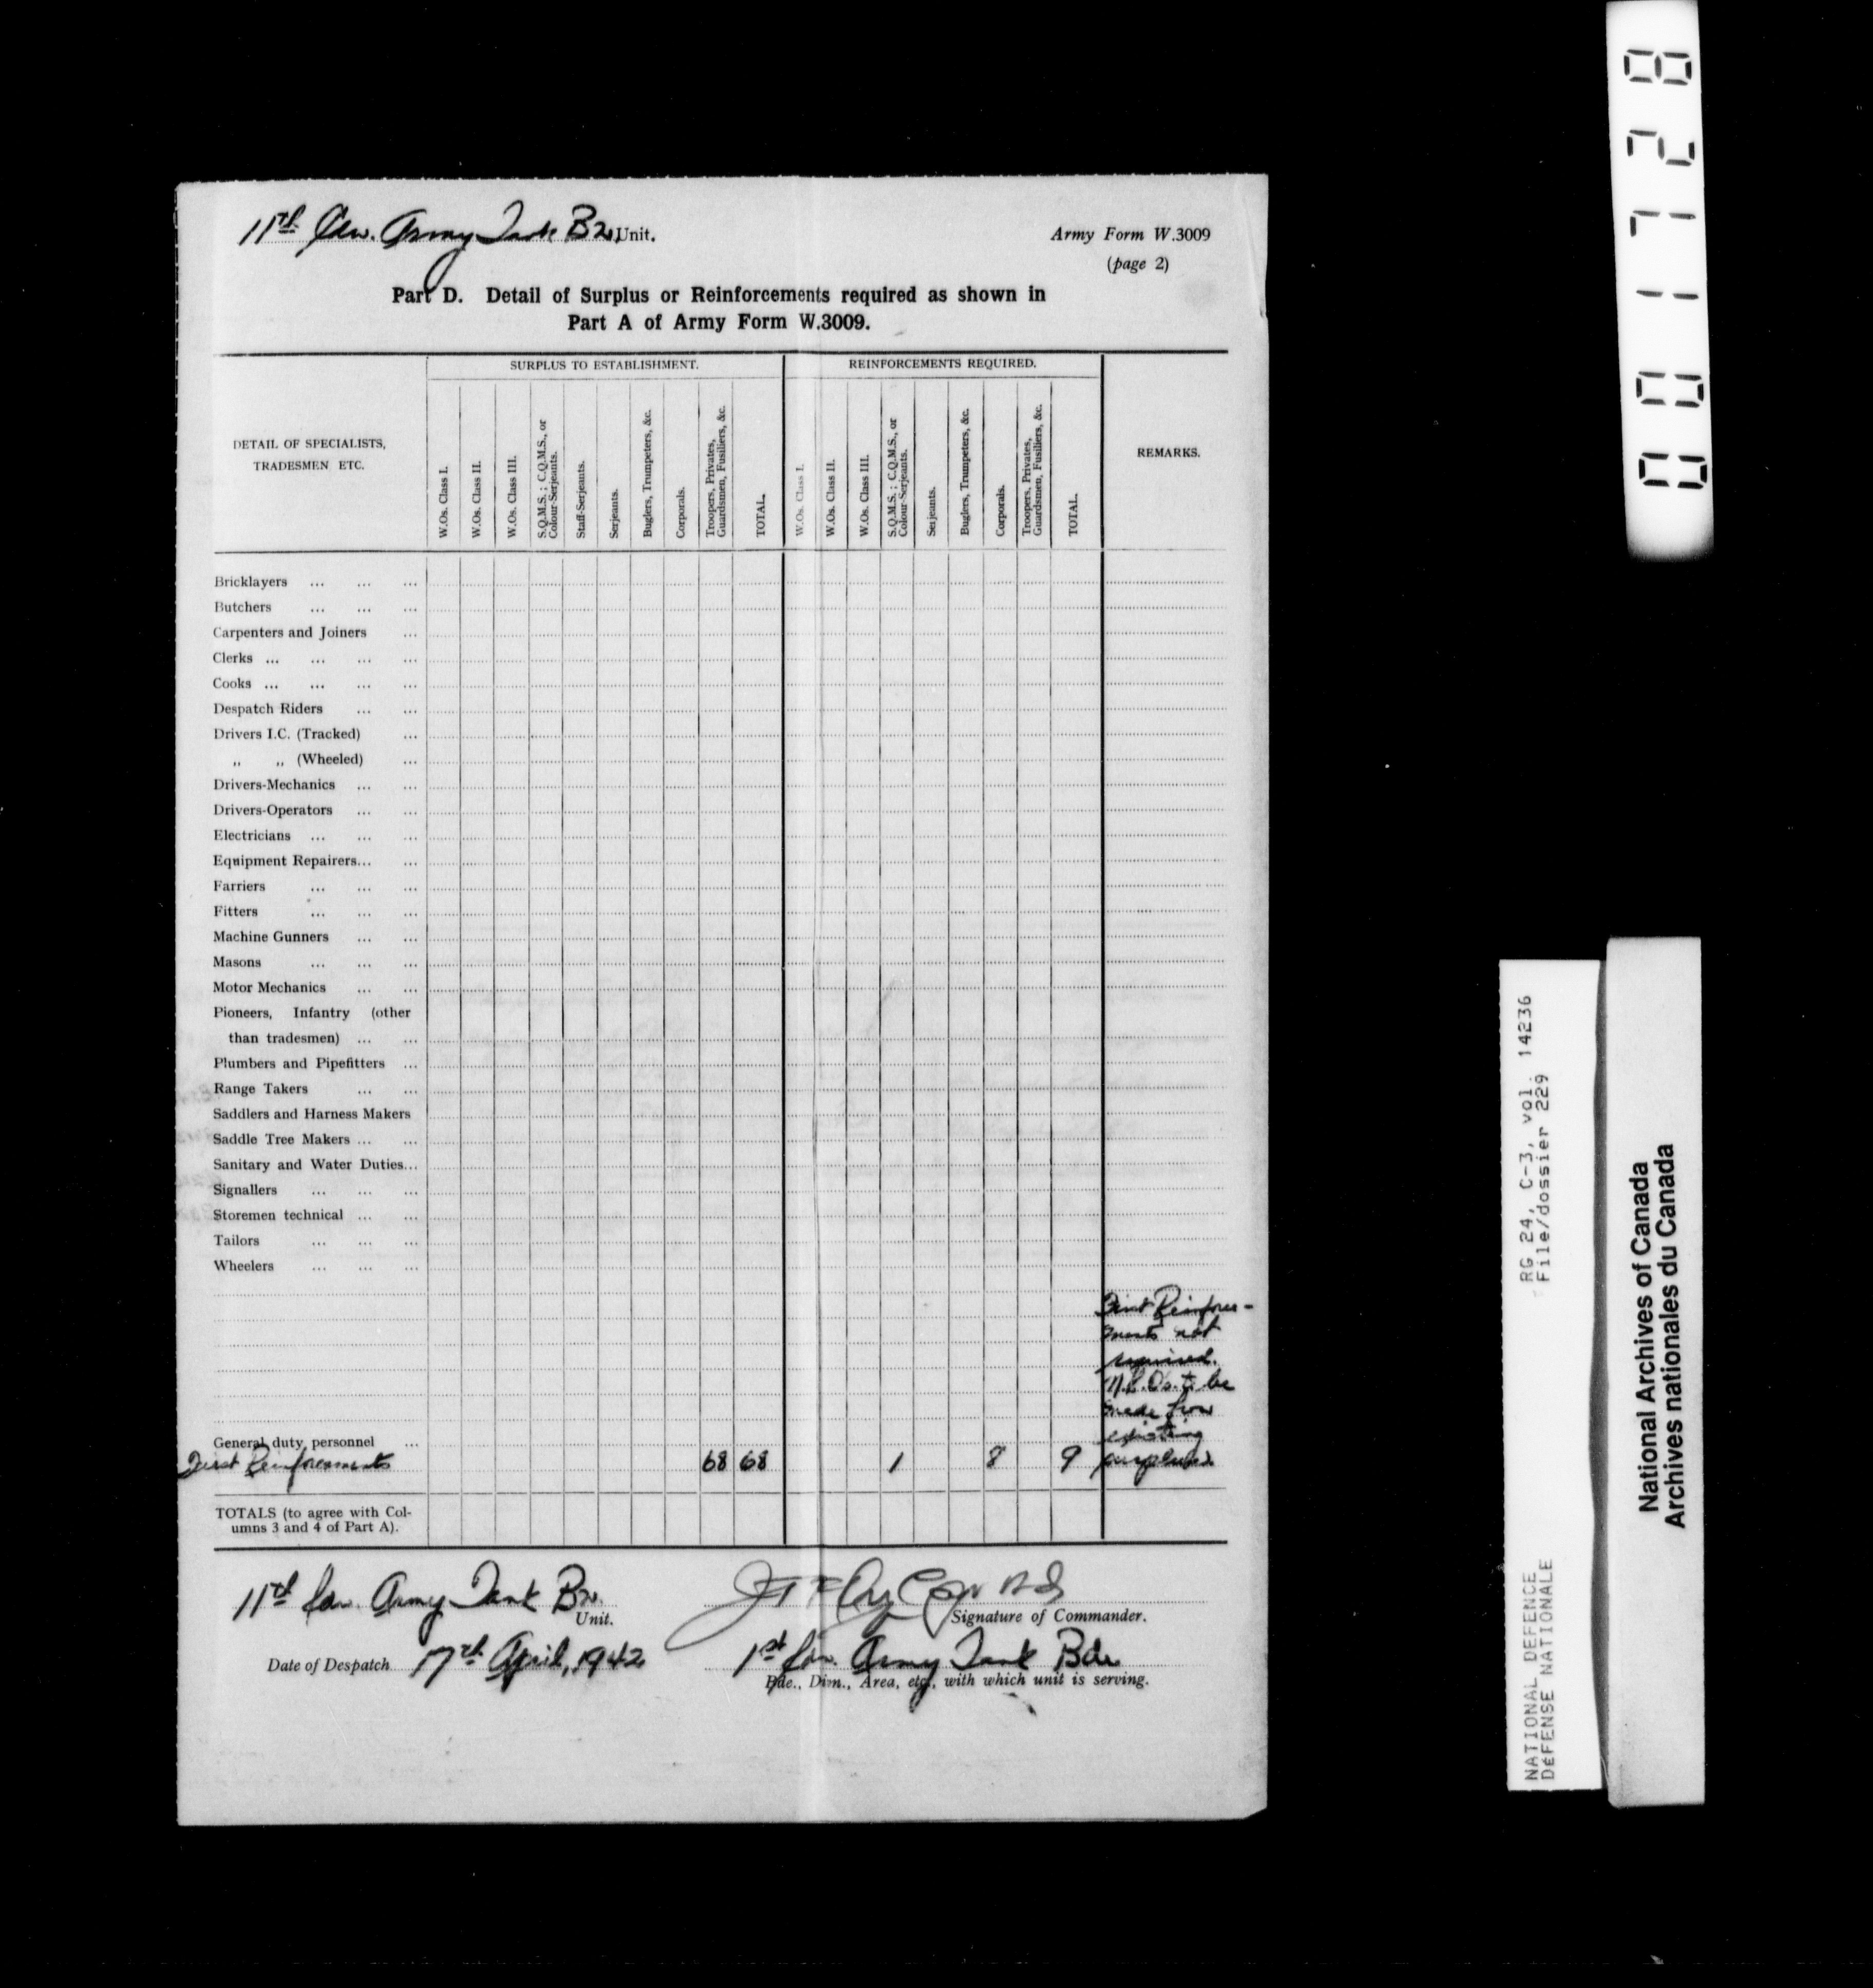 11th Cdn. Army Tank Bn. Unit.
Army Form W.3009
(page 2)
Part D. Detail of Surplus or Reinforcements required as shown in
Part A of Army Form W.3009.
DETAIL OF SPECIALISTS,
TRADESMEN ETC.
SURPLUS TO ESTABLISHMENT.
W.Os. Class I.
W.Os. Class II.
W.Os. Class III.
S.Q.M.S. ; C.Q.M.S., or
Colour-Serjeants.
Staff-Serjeants.
Serjeants.
Buglers, Trumpeters, &c.
Corporals.
Troopers, Privates,
Guardsmen, Fusiliers, &c.
TOTAL.
REINFORCEMENTS REQUIRED.
W.Os. Class I.
W.Os. Class II.
W.Os. Class III.
S.Q.M.S. ; C.Q.M.S., or
Colour-Serjeants.
Serjeants.
Buglers, Trumpeters, &c.
Corporals.
Troopers, Privates,
Guardsmen, Fusiliers, &c.
TOTAL.
REMARKS.
Bricklayers ... ... ...
Butchers ... ... ...
Carpenters and Joiners ...
Clerks ... ... ... ...
Cooks ... ... ... ...
Despatch Riders ... ...
Drivers I.C. (Tracked) ...
,, ,, (Wheeled) ...
Drivers-Mechanics ... ...
Drivers-Operators ... ...
Electricians ... ... ...
Equipment Repairers... ...
Farriers ... ... ...
Fitters ... ... ...
Machine Gunners ... ...
Masons ... ... ...
Motor Mechanics ... ...
Pioneers, Infantry (other
than tradesmen) ... ...
Plumbers and Pipefitters ...
Range Takers ... ...
Saddlers and Harness Makers
Saddle Tree Makers ... ...
Sanitary and Water Duties...
Signallers ... ... ...
Storemen technical ... ...
Tailors ... ... ...
Wheelers ... ... ...
First Reinforce-
ments not
required.
N.C.Os. to be
made from
existing
General duty personnel ...
First Reinforcements 68 68 1 8 9 surpluses
TOTALS (to agree with Col-
umns 3 and 4 of Part A).
11th Cdn. Army Tank Bn.
Unit.
Signature of Commander.
Date of Despatch 17th April, 1942
1st Cdn. Army Tank Bde
Bde., Divn., Area, etc., with which unit is serving.
001728
RG 24, C-3, vol. 14236
File/dossier 229
NATIONAL DEFENCE
DÉFENSE NATIONALE
National Archives of Canada
Archives nationales du Canada